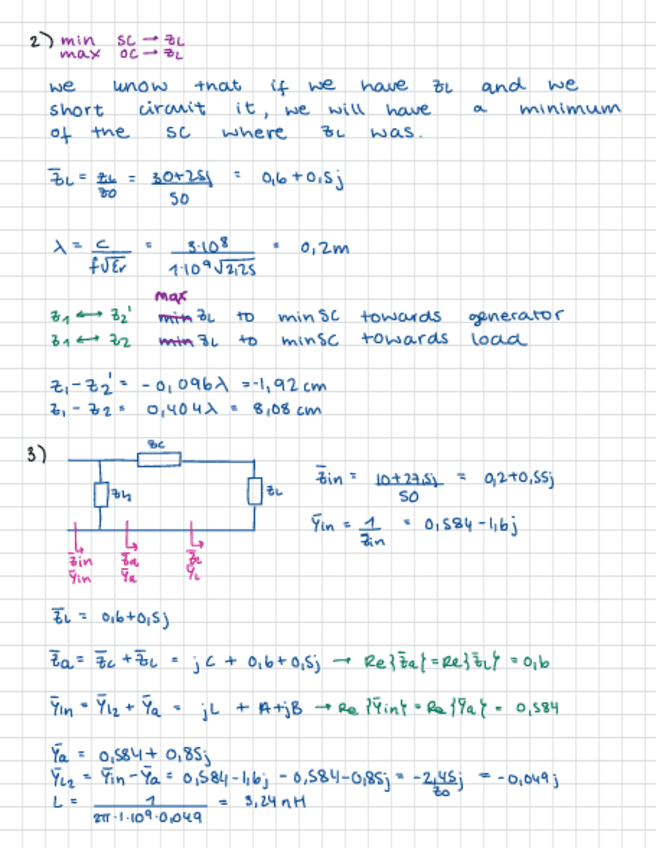 2) min SC → zL
max OC → zL
we unow that if we have zL and we
short circuit it, we will have a minimum
of the SC where zL was.
z̄L = zL/z0 = 30+25j/50 = 0,6+0,5j
λ = c/f√εr = 3·10⁸/1·10⁹√2,25 = 0,2m
max
z1 ↔ z2' min zL to minSC towards generator
z1 ↔ z2 min zL to minSC towards load
z1-z2' = -0,096λ =-1,92 cm
z1 - z2 = 0,404λ = 8,08 cm
3)
zC
zL
z̄in = 10+27,5j/50 = 0,2+0,55j
ȳin = 1/z̄in = 0,584-1,6j
z̄in z̄a z̄L
ȳin ȳa ȳL
z̄L = 0,6+0,5j
z̄a = z̄c + z̄L = jC + 0,6+0,5j → Re{z̄a}=Re{z̄L} = 0,6
ȳin = ȳL2 + ȳa = jL + A+jB → Re{ȳin} = Re{ȳa} = 0,584
ȳa = 0,584+0,85j
ȳL2 = ȳin-ȳa = 0,584-1,6j - 0,584-0,85j = -2,45j/z0 = -0,049j
L = 1/2π·1·10⁹·0,049 = 3,24nH